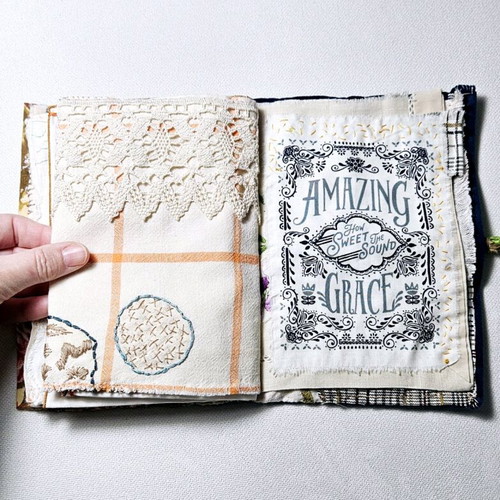 AMAZING
How
SWEET The
SOUND
GRACE